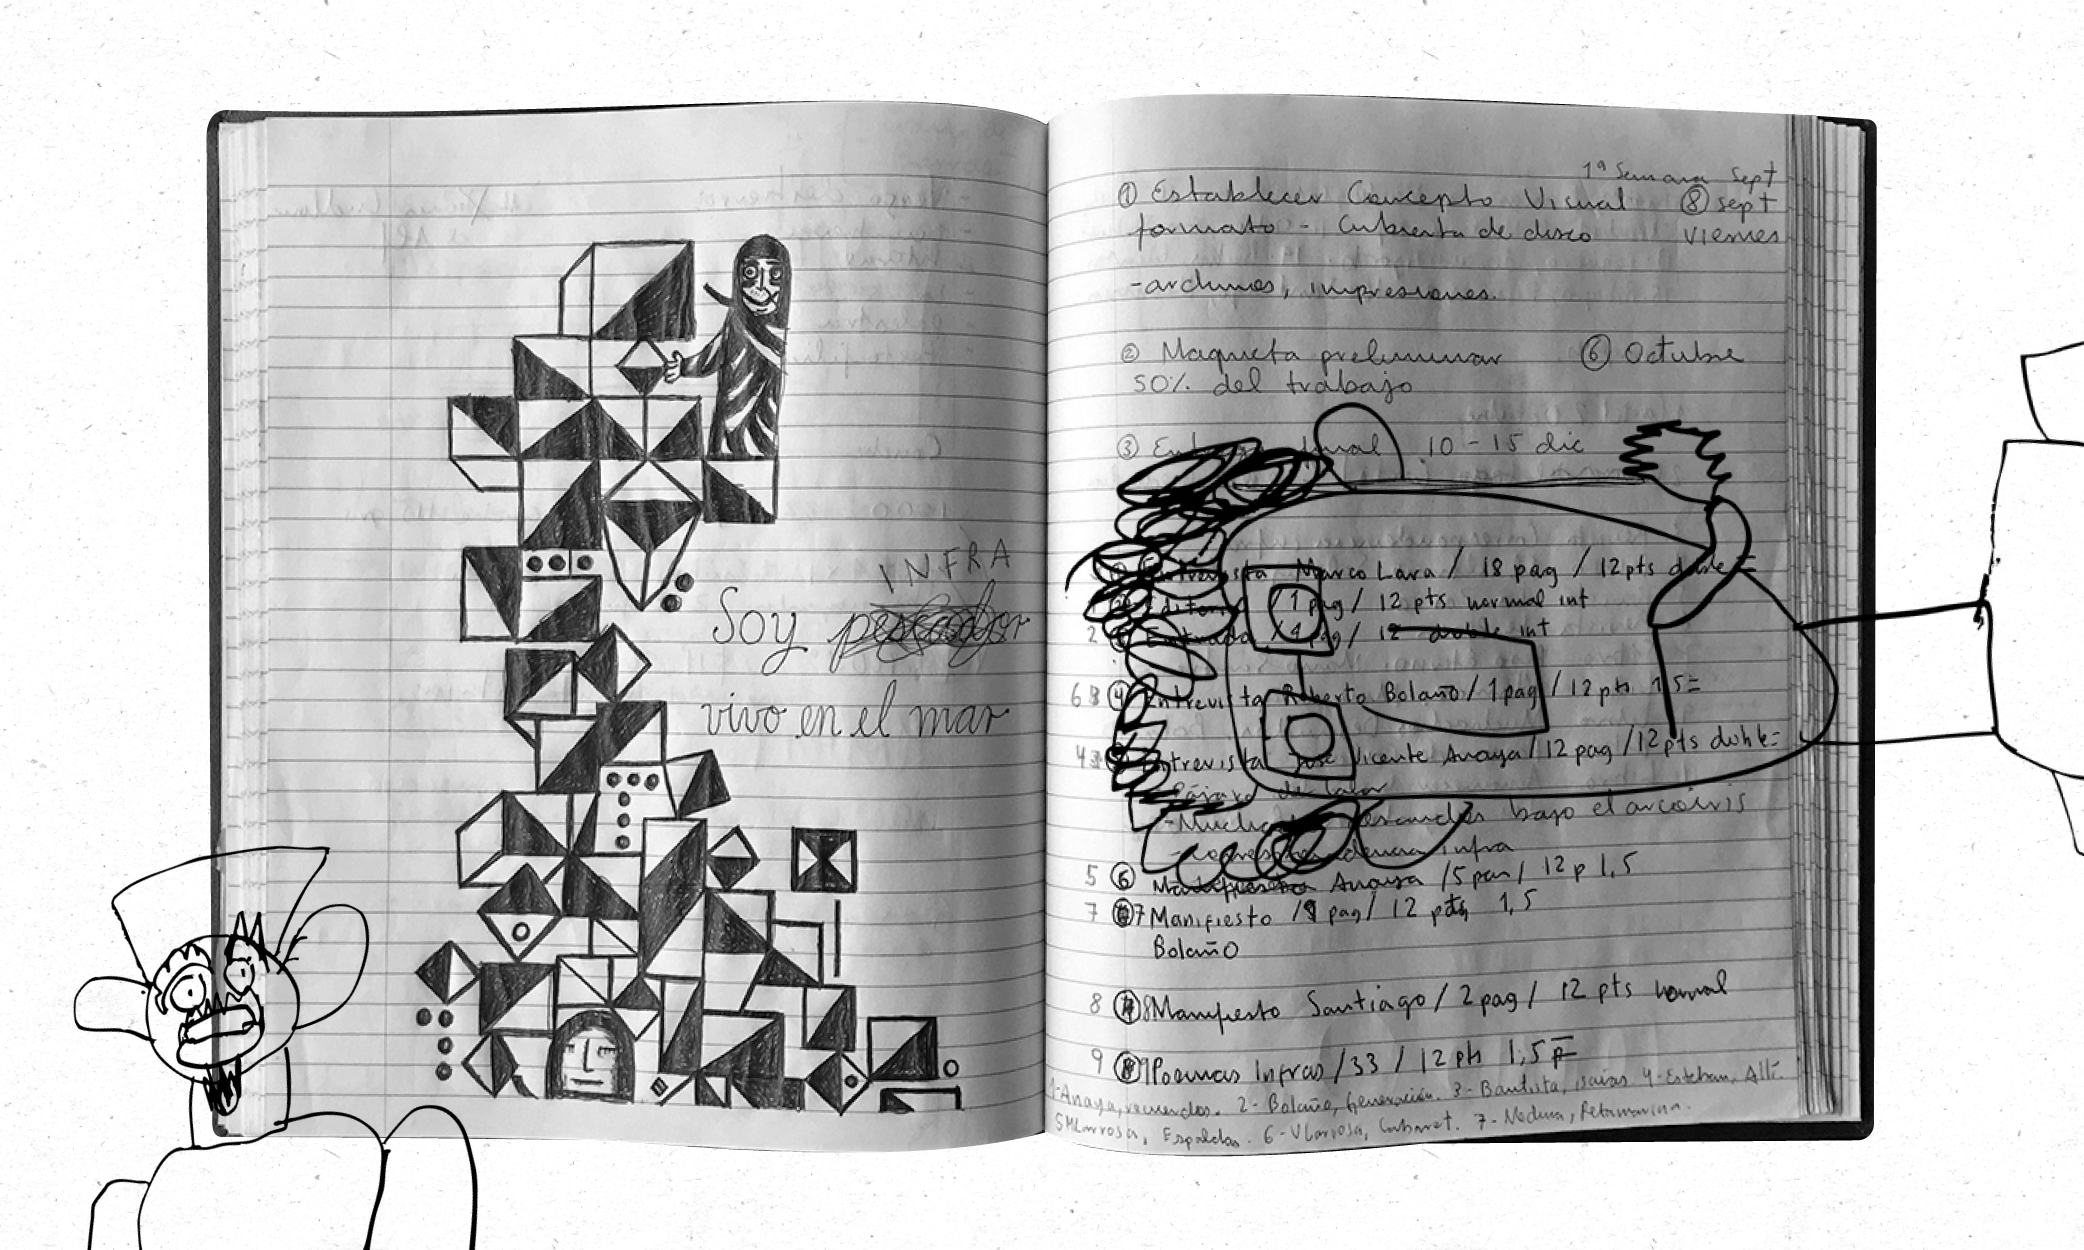 INFRA
Soy pescador
vivo en el mar
1ª Semana Sept
① Establecer Concepto Visual ⑧ sept
formato - Cubierta de disco viernes
- archivos, impresiones.
② Maqueta preliminar ⑥ Octubre
50% del trabajo
③ 10 - 15 dic
Entrevista Marco Lara / 18 pag / 12 pts doble
Editorial / 1 pag / 12 pts normal int
2 Entrada / 4 pag / 12 doble int
6 ④ Entrevista Roberto Bolaño / 1 pag / 12 pts 1.5 =
4 Entrevista José Vicente Anaya / 12 pag / 12 pts doble =
- Pájaro de calor
- Muchachos desnudos bajo el arcoiris
- correspondencia infra
5 ⑥ Anaya / 5 pan / 12 p 1,5
7 7 Manifiesto / 9 pag / 12 pts 1,5
Bolaño
8 8 Manifiesto Santiago / 2 pag / 12 pts normal
9 9 Poemas Infras / 33 / 12 pts 1,5
1- Anaya, recuerdos. 2- Bolaño, Generación. 3- Bautista, isaías 4- Esteban, Alti.
5 M Larrosa, Espaldas. 6- V Larrosa, Cabaret. 7- Medina,